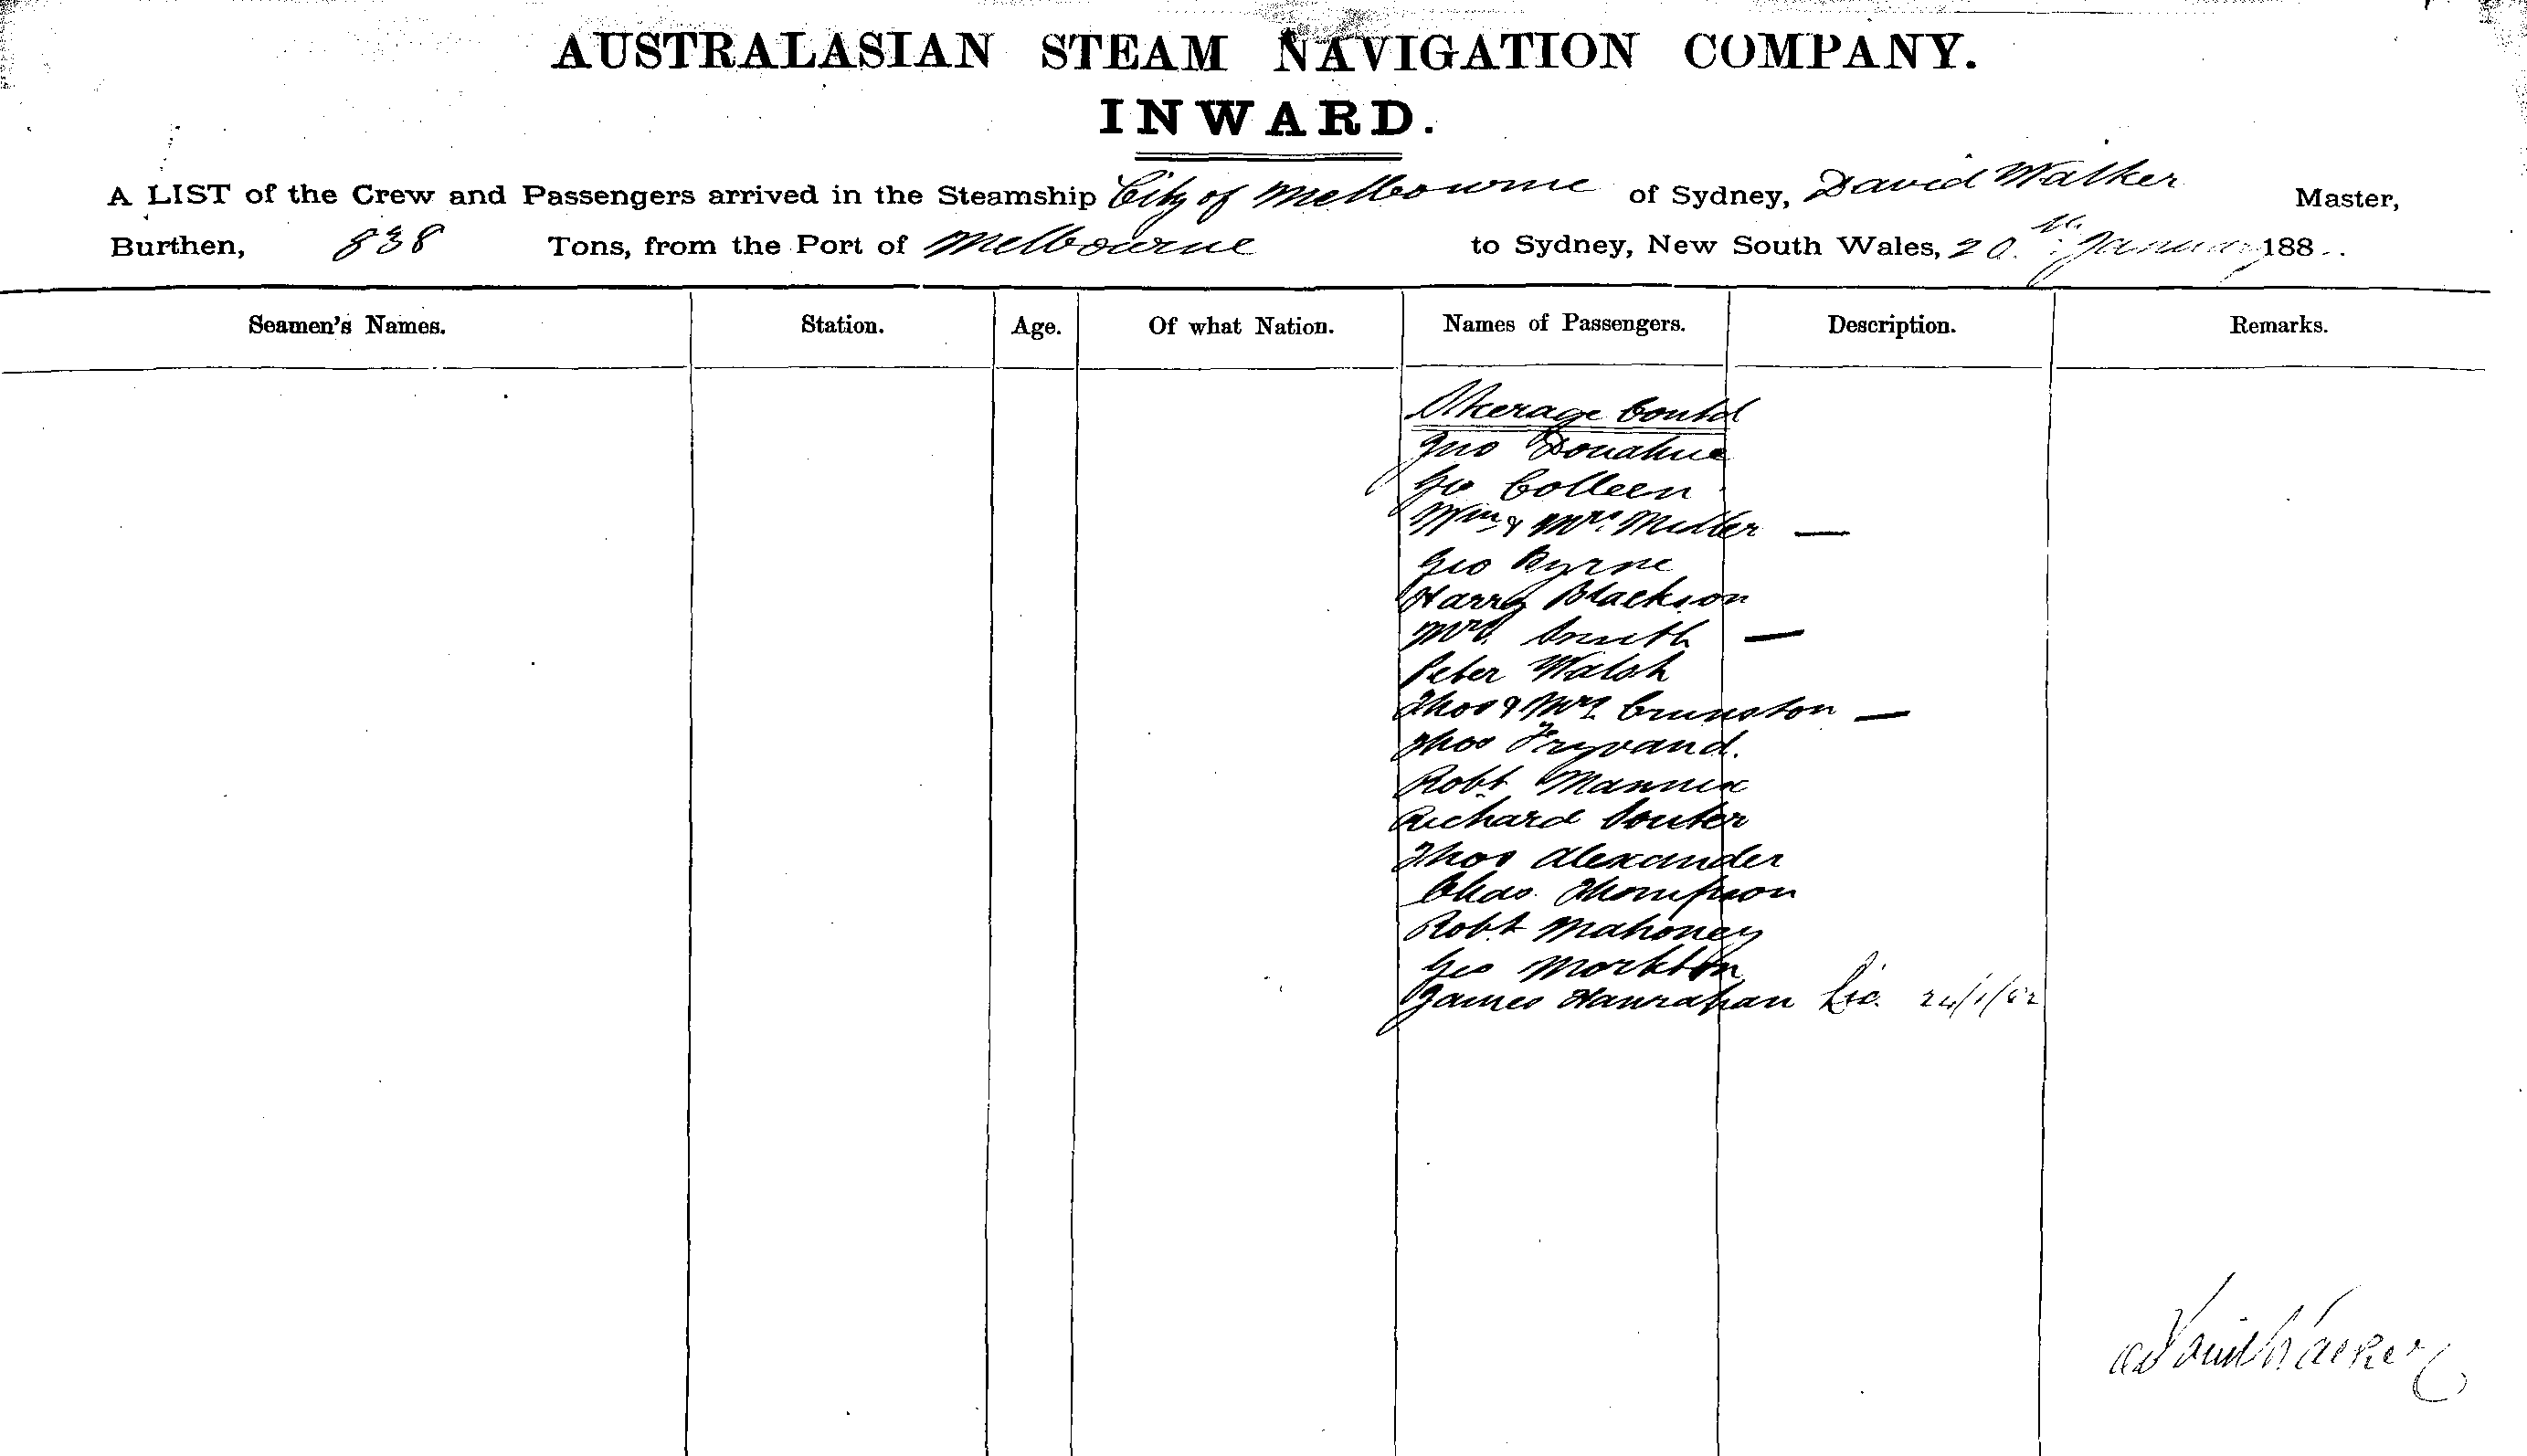 AUSTRALASIAN STEAM NAVIGATION COMPANY.
INWARD.
A LIST of the Crew and Passengers arrived in the Steamship City of Melbourne of Sydney, David Walker Master,
Burthen, 838 Tons, from the Port of Melbourne to Sydney, New South Wales, 20th January 188
Seamen's Names. Station. Age. Of what Nation. Names of Passengers. Description. Remarks.
Steerage Contd
Jno Donahue
Geo Colleen
Wm & Mrs Miller —
Geo Byrne
Harry Blackson
Mrs. Smith —
Peter Walsh
Thos & Mrs Crunston —
Thos
Robt Mannix
Richard Souter
Thos Alexander
Chas. Thompson
Robt Mahoney
Geo Morkton
James Hanrahan Lic. 24/1/82
David Walker